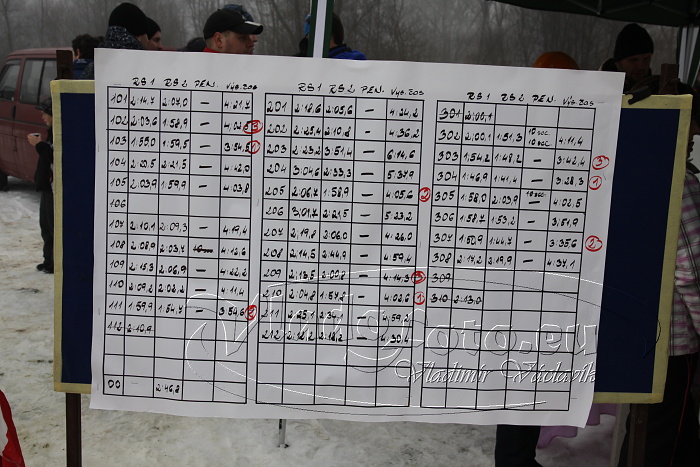 RS1 RS2 PEN. Výs. čas
101 2:14,7 2:07,0 — 4:21,7
102 2:03,6 1:58,9 — 4:02,5 3
103 1:55,0 1:59,5 — 3:54,5 1
104 2:20,5 2:21,5 — 4:42,0
105 2:03,9 1:59,9 — 4:03,8
106
107 2:10,1 2:09,3 — 4:19,4
108 2:08,9 2:03,7 4:12,6
109 2:15,3 2:06,9 — 4:22,2
110 2:09,2 2:02,2 — 4:11,4
111 1:59,9 1:54,7 — 3:54,6 2
112 2:10,9
00 2:46,8
RS1 RS2 PEN. Výs. čas
201 2:18,6 2:05,6 — 4:24,2
202 2:25,4 2:10,8 — 4:36,2
203 2:23,2 3:51,4 — 6:14,6
204 3:04,6 2:33,3 — 5:37,9
205 2:06,7 1:58,9 — 4:05,6 2
206 3:01,7 2:21,5 — 5:23,2
207 2:19,8 2:06,0 — 4:26,0
208 2:14,5 2:44,9 — 4:59,4
209 2:13,5 2:00,8 — 4:14,3 3
210 2:04,8 1:57,8 — 4:02,6 1
211 2:25,1 2:34,1 — 4:59,2
212 2:12,2 2:18,2 — 4:30,4
RS1 RS2 PEN. Výs. čas
301 2:00,1
302 2:00,1 1:51,3 10 sec 10 sec 4:11,4
303 1:54,2 1:48,2 — 3:42,4 3
304 1:46,9 1:41,4 — 3:28,3 1
305 1:58,0 2:03,9 4:02,5
306 1:58,7 1:53,2 — 3:51,9
307 1:50,9 1:44,7 — 3:35,6 2
308 2:17,2 2:19,9 — 4:37,1
309
310 2:13,0
Vladimír Václavík